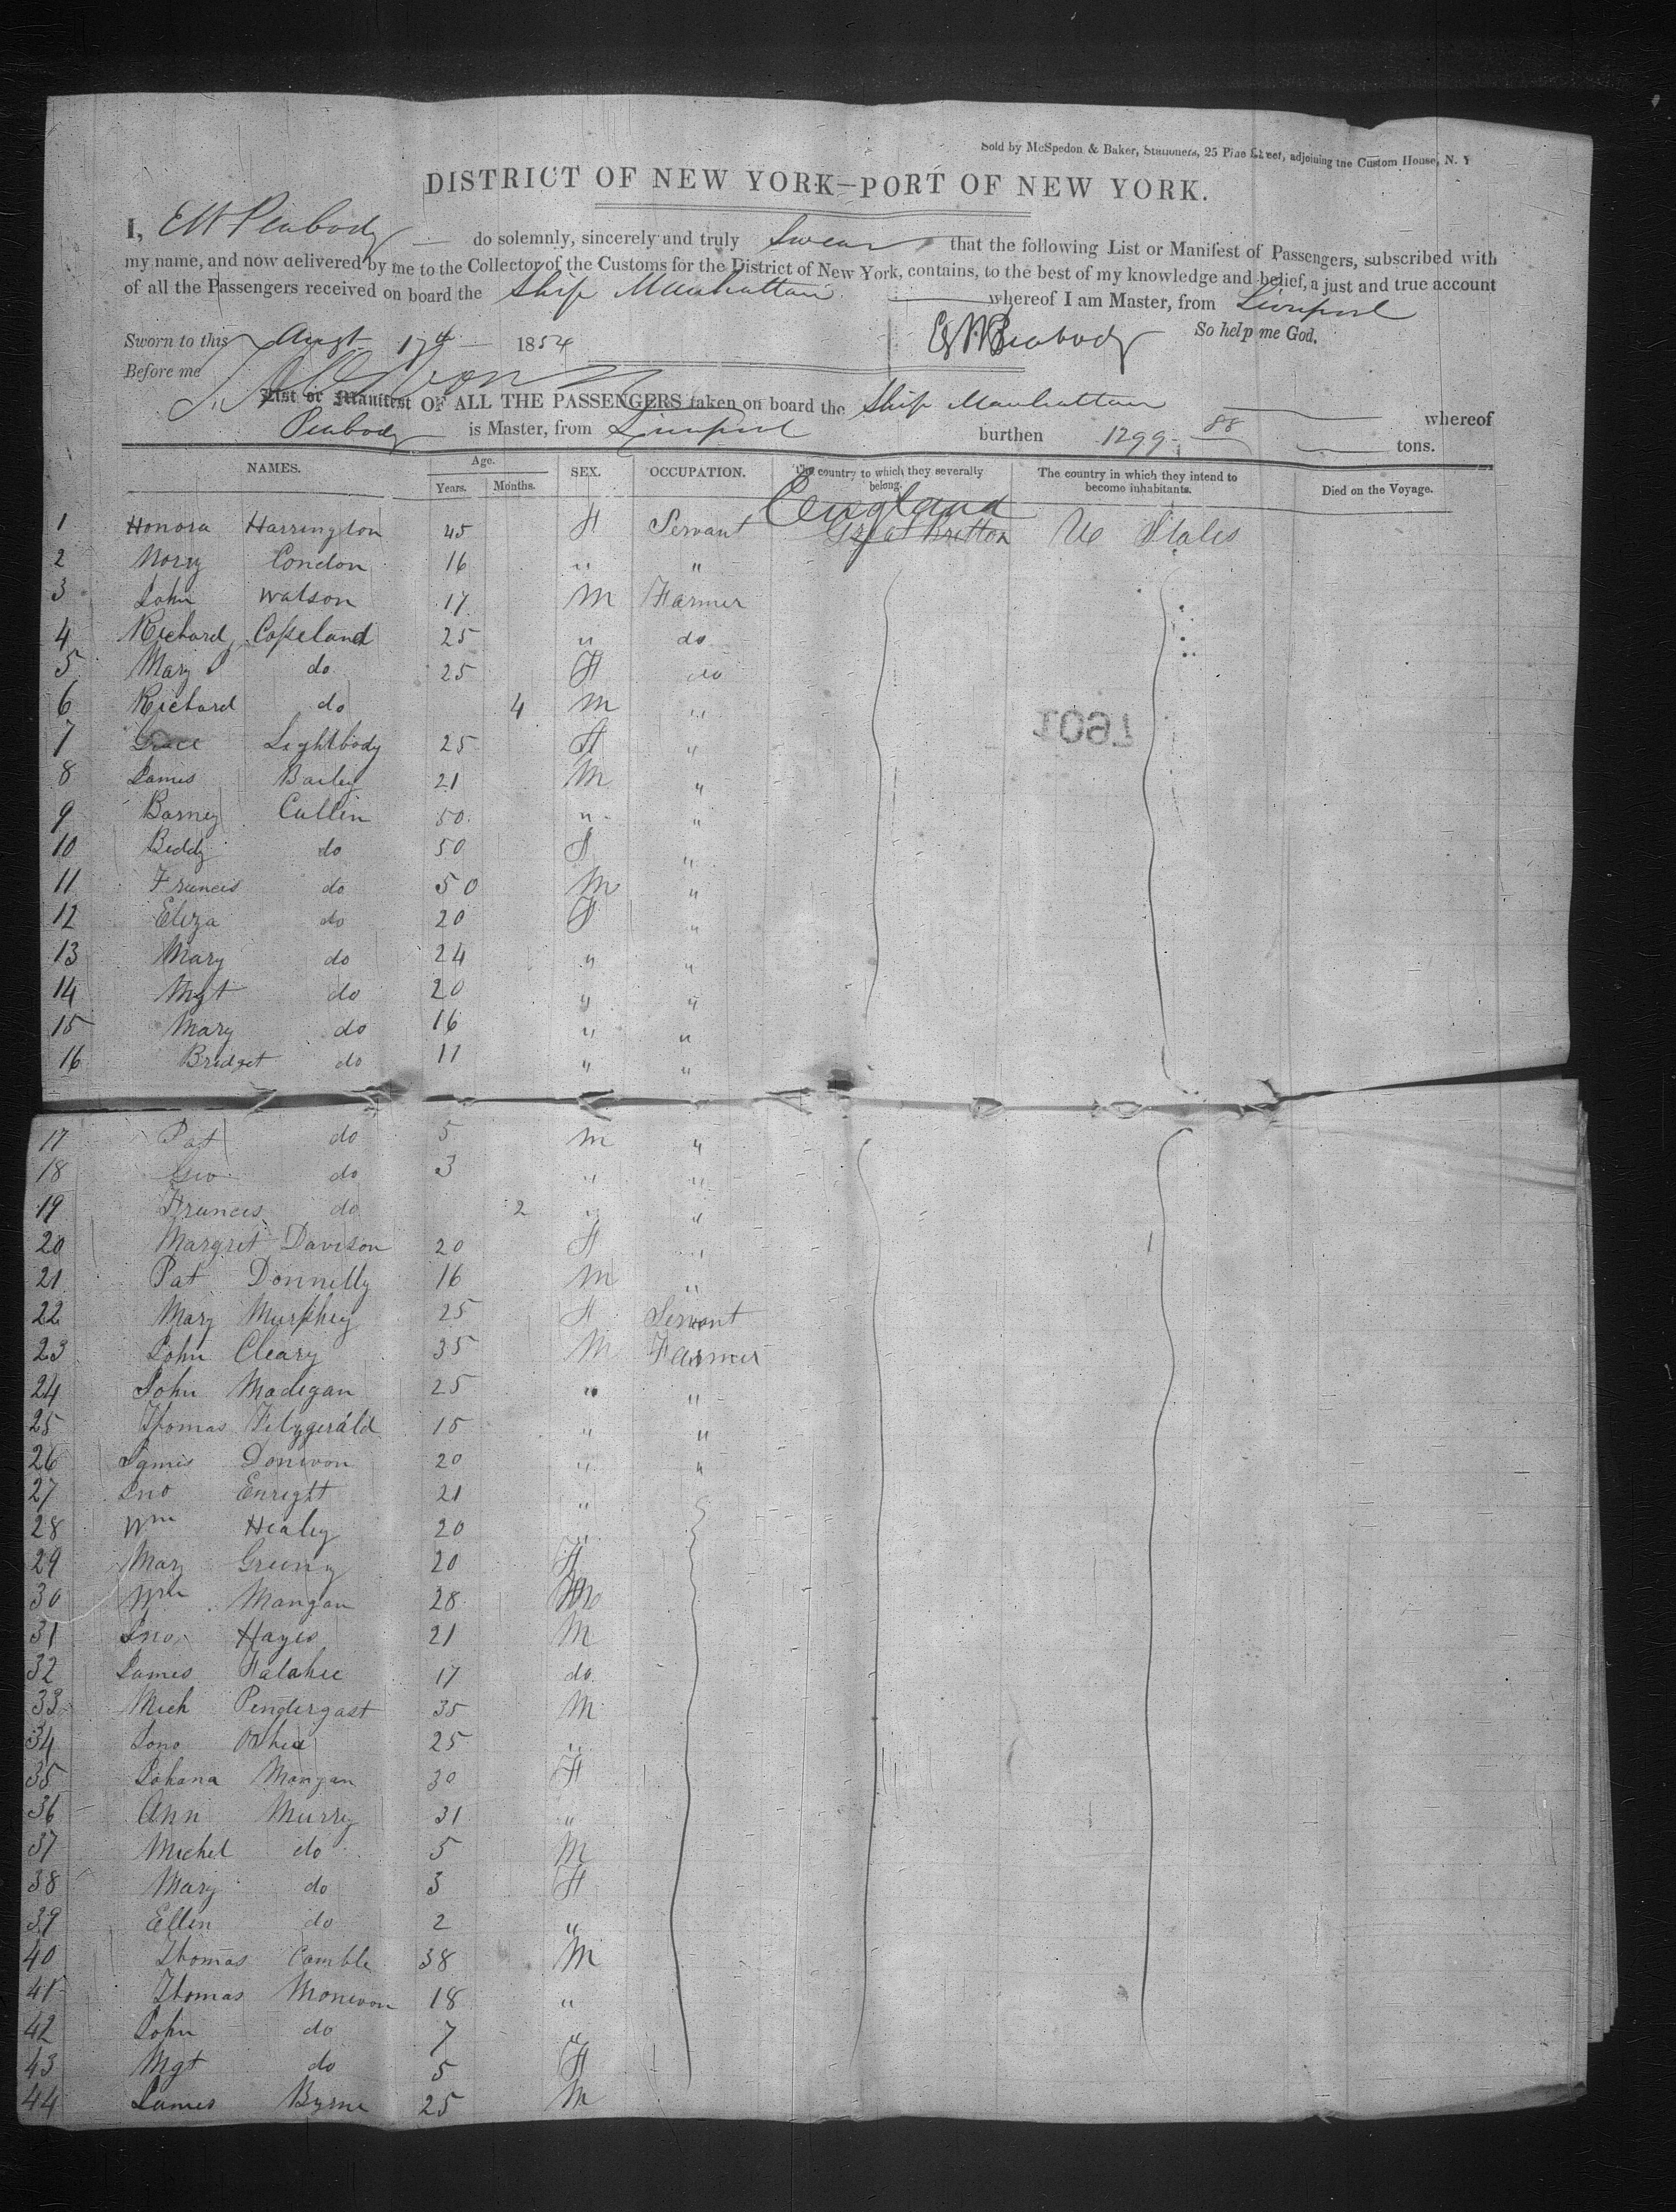 Sold by McSpedon & Baker, Stationers, 25 Pine Street, adjoining the Custom House, N. Y
DISTRICT OF NEW YORK—PORT OF NEW YORK.
I, E W Peabody do solemnly, sincerely and truly Swear that the following List or Manifest of Passengers, subscribed with
my name, and now delivered by me to the Collector of the Customs for the District of New York, contains, to the best of my knowledge and belief, a just and true account
of all the Passengers received on board the Ship Manhattan whereof I am Master, from Liverpool
Sworn to this Augt 17th 1854 E W Peabody So help me God.
Before me
List or Manifest OF ALL THE PASSENGERS taken on board the Ship Manhattan whereof
Peabody is Master, from Liverpool burthen 1299 88 tons.
NAMES. Age. Years. Months. SEX. OCCUPATION. The country to which they severally belong. The country in which they intend to become inhabitants. Died on the Voyage.
England
1 Honora Harrington 45 F Servant Great Britton U States
2 Nory Condon 16 " "
3 John Watson 17 M Farmer
4 Richard Copeland 25 " do
5 Mary do 25 F do
6 Richard do 4 M "
7 Grace Lightbody 25 F "
8 James Bailey 21 M "
9 Barney Cullin 50 " "
10 Biddy do 50 F "
11 Francis do 50 M "
12 Eliza do 20 F "
13 Mary do 24 " "
14 Mgt do 20 " "
15 Mary do 16 " "
16 Bridget do 11 " "
17 Pat do 5 M "
18 Geo do 3 " "
19 Francis do 2 " "
20 Margret Davison 20 F "
21 Pat Donnelly 16 M "
22 Mary Murphey 25 F Servant
23 John Cleary 35 M Farmer
24 John Madigan 25 " "
25 Thomas Fitzgerald 15 " "
26 James Donivon 20 " "
27 Jno Enright 21 "
28 Wm Healey 20 "
29 Mary 20 F
30 Wm Mangan 28 M
31 Jno Hayes 21 M
32 James Falahee 17 do
33 Mich Pendergast 35 M
34 Jono 25 "
35 Johana Mongan 30 F
36 Ann Murry 31 "
37 Michel do 5 M
38 Mary do 3 F
39 Ellen do 2 "
40 Thomas Camble 38 M
41 Thomas Monivon 18 "
42 John do 7 "
43 Mgt do 5 F
44 James Byrne 25 M